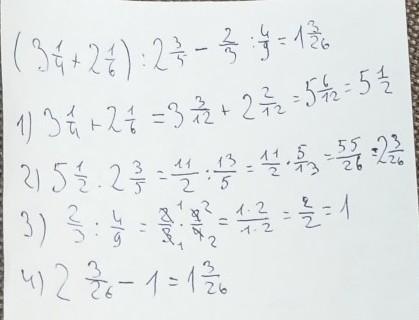 (3 1/4 + 2 1/6) : 2 3/5 - 2/3 : 4/9 = 1 3/26
1) 3 1/4 + 2 1/6 = 3 3/12 + 2 2/12 = 5 6/12 = 5 1/2
2) 5 1/2 . 2 3/5 = 11/2 : 13/5 = 11/2 · 5/13 = 55/26 = 2 3/26
3) 2/3 : 4/9 = 1·2/1·2 = 2/2 = 1
4) 2 3/26 - 1 = 1 3/26